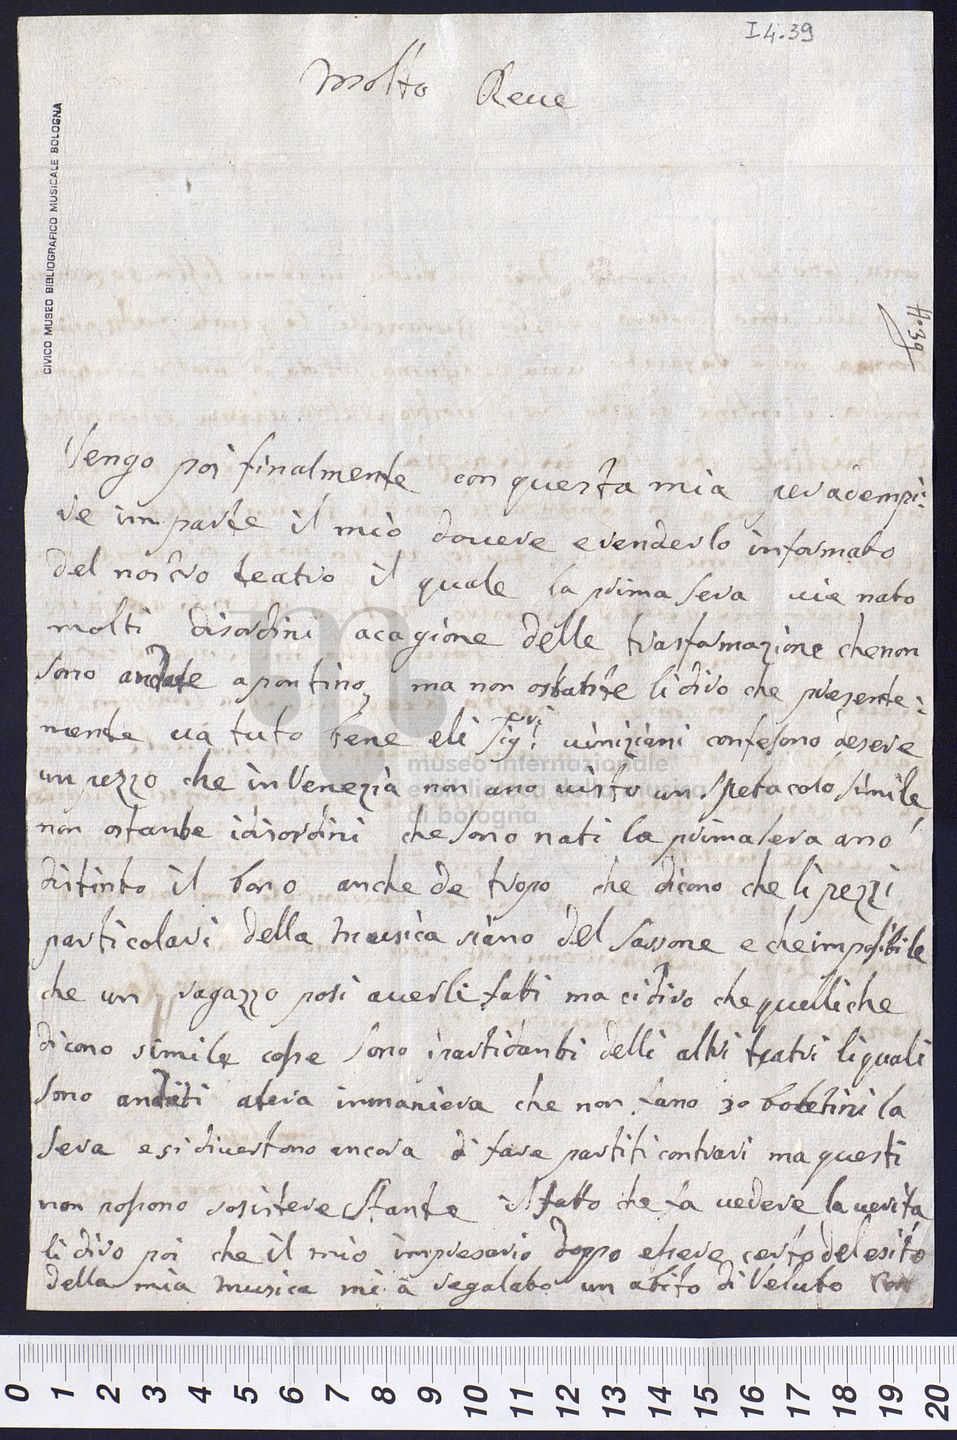 I 4.39
Molto Reue
CIVICO MUSEO BIBLIOGRAFICO MUSICALE BOLOGNA
Vengo poi finalmente con questa mia per adempi:
re im parte il mio douere e renderlo informato
del nostro teatro il quale la prima sera uie nato
molti disordini acagione delle trasformazione che non
sono andate apontino, ma non ostante li dico che presente:
mente ua tuto bene e li Sig.ri viniziani confesono deseve
un pezzo che in Venezia non ano uisto un Spetacolo simile
non ostante i disordini che sono nati la prima sera ano
distinto il bono anche de tropo che dicono che li pezzi
particolari della musica siano del Sassone e che imposibile
che un ragazzo posi auerli fatti ma ci dico che quelli che
dicono simile cose sono i partidanti delli altri teatri li quali
sono andati a tera in maniera che non fano 30 boletini la
sera e si diuertono ancora di fare partiti contrari ma questi
non posono sosistere stante il fatto che fa uedere la uerita
li dico poi che il mio impresario doppo esere certo del esito
della mia musica mi à regalato un abito di Veluto con
museo internazionale
e biblioteca della musica
di bologna
0 1 2 3 4 5 6 7 8 9 10 11 12 13 14 15 16 17 18 19 20